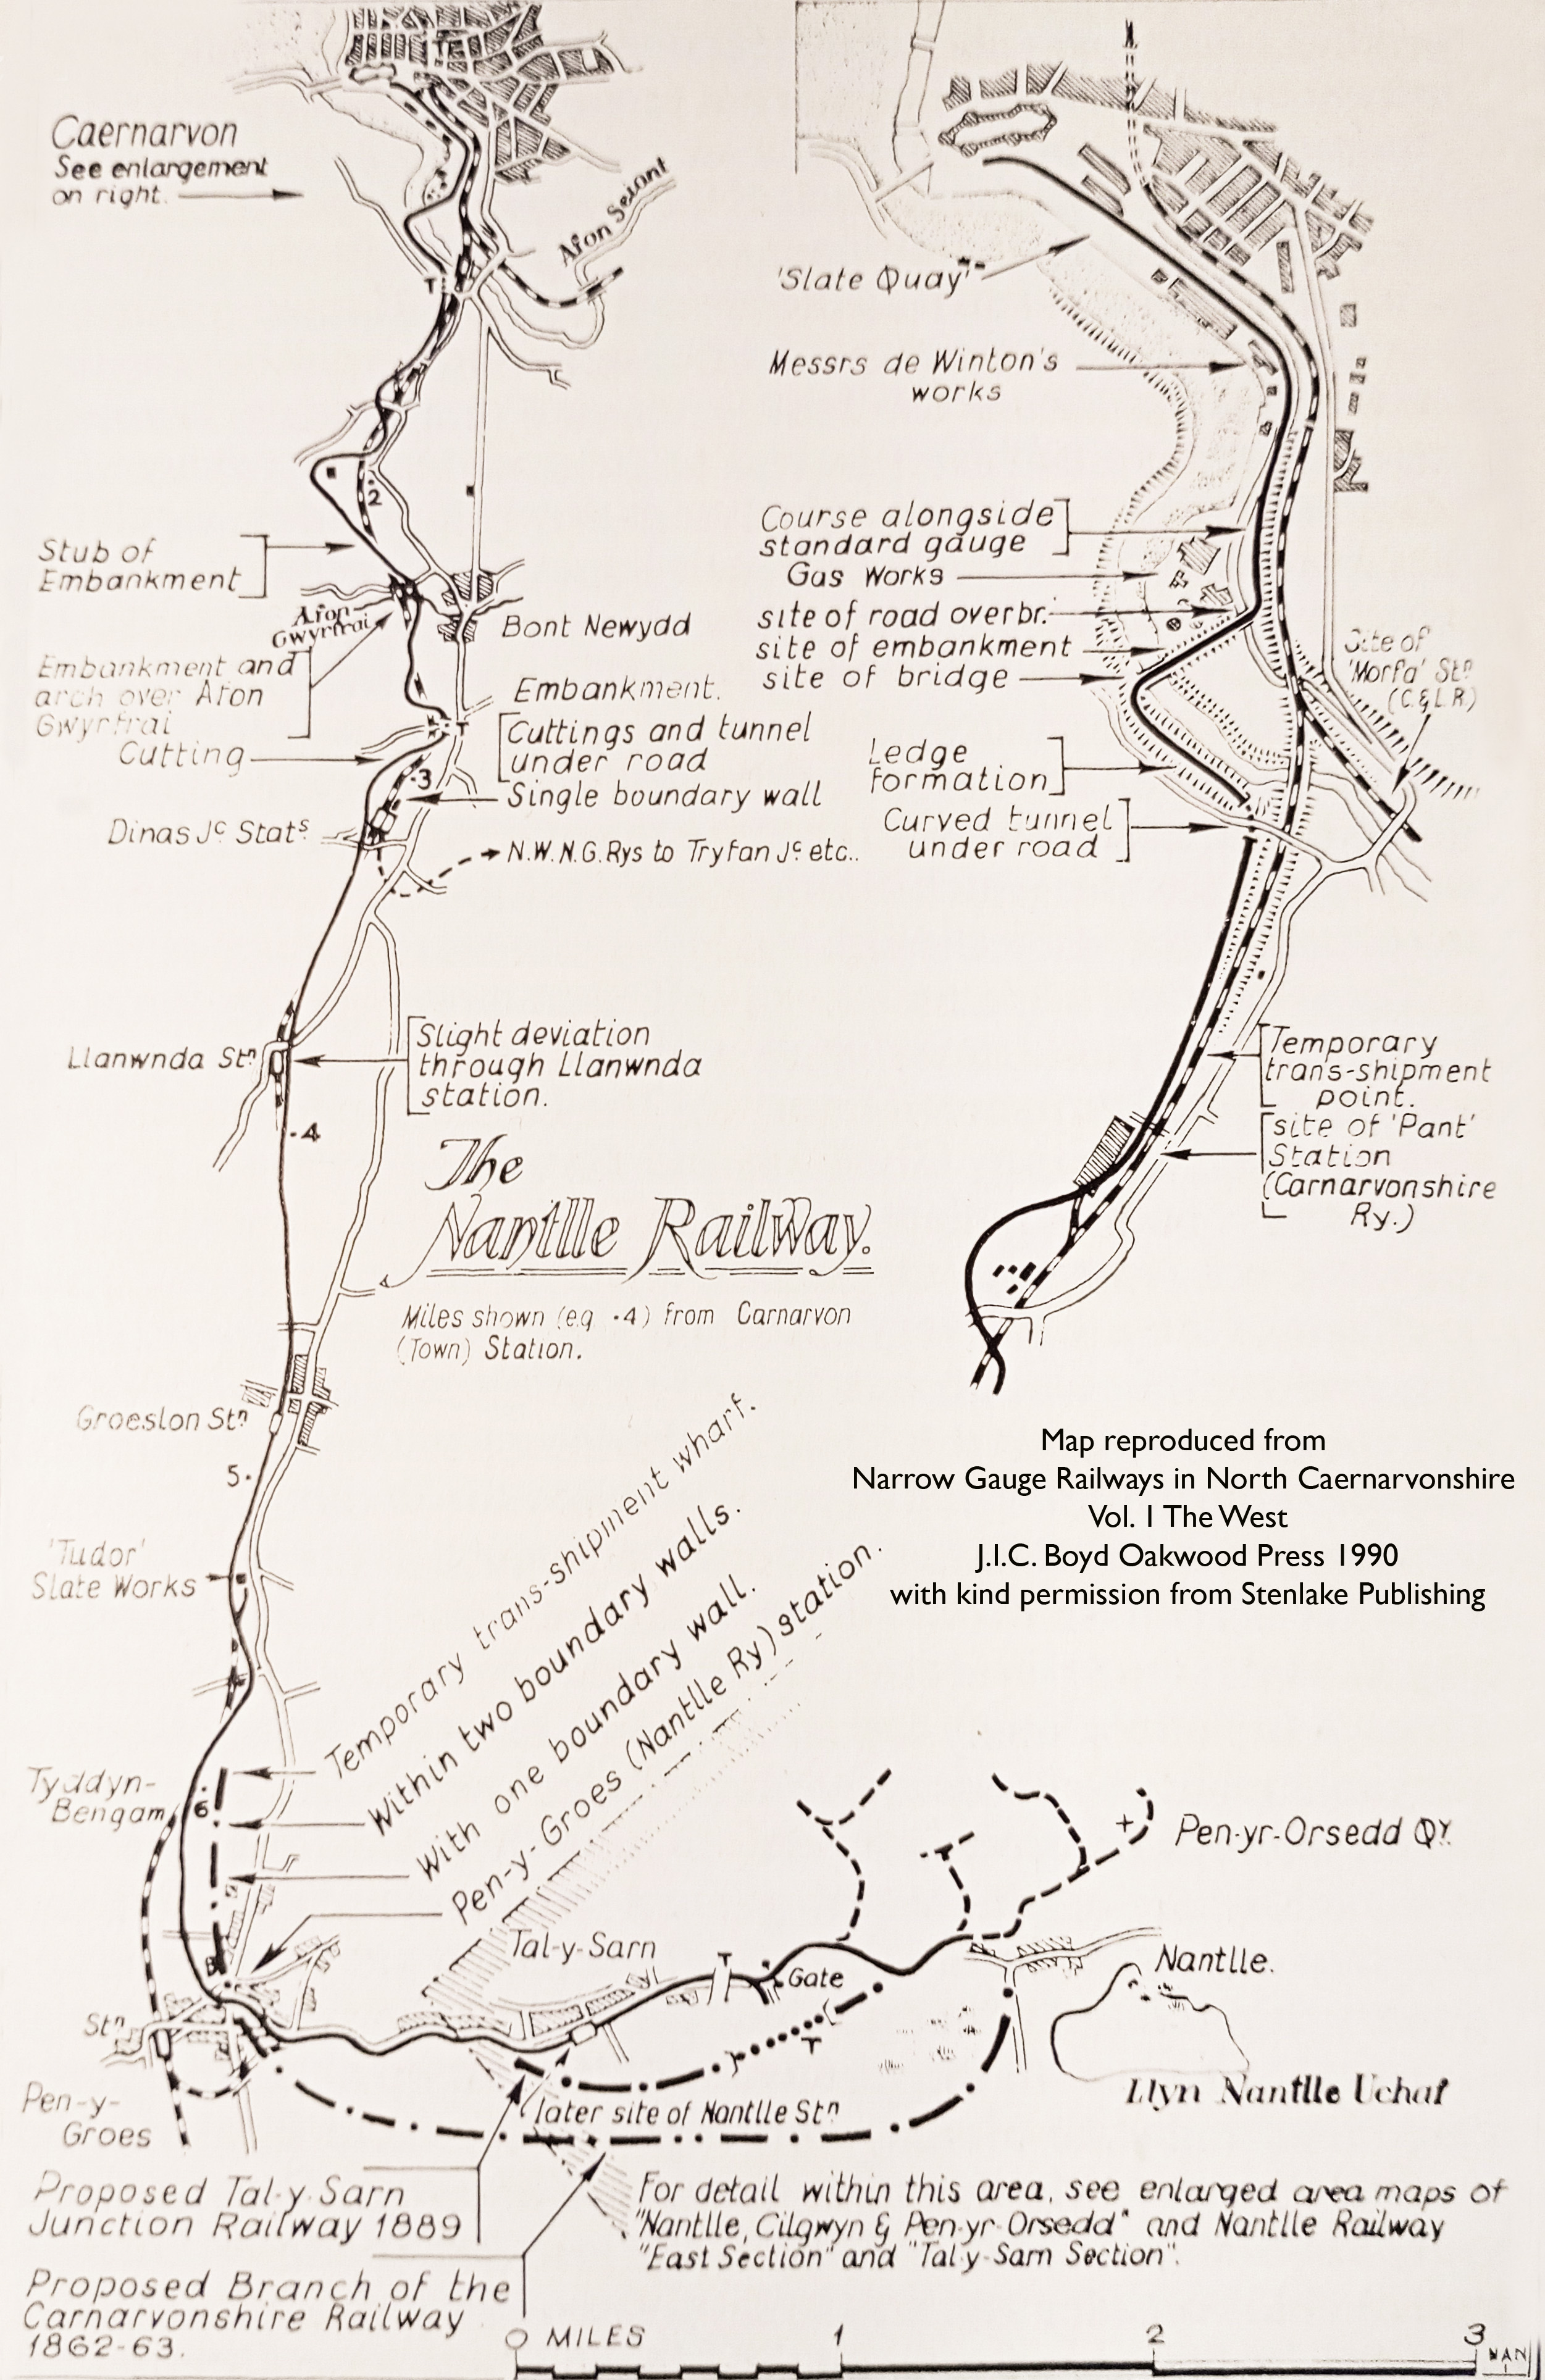 Caernarvon
See enlargement
on right.
Afon Seiont
T
2
Stub of
Embankment
Afon
Gwyrfrai
Bont Newydd
Embankment and
arch over Afon
Gwyrfrai
Embankment.
Cutting
Cuttings and tunnel
under road
T
·3
Single boundary wall
Dinas Jc Stats
N.W.N.G.Rys to Tryfan Jc etc..
Llanwnda Stn
Slight deviation
through Llanwnda
station.
·4
The
Nantlle Railway.
Miles shown (eg ·4) from Carnarvon
(Town) Station.
Groeslon Stn
5·
'Tudor'
Slate Works
'Slate Quay'
Messrs de Winton's
works
Course alongside
standard gauge
Gas Works
site of road overbr.
site of embankment
site of bridge
Site of
'Morfa' Stn
(C.& L.R.)
Ledge
formation
Curved tunnel
under road
Temporary
trans-shipment
point.
site of 'Pant'
Station
(Carnarvonshire
Ry.)
Map reproduced from
Narrow Gauge Railways in North Caernarvonshire
Vol. 1 The West
J.I.C. Boyd Oakwood Press 1990
with kind permission from Stenlake Publishing
Temporary trans-shipment wharf.
Within two boundary walls.
With one boundary wall.
Pen-y-Groes (Nantlle Ry) station.
Tyddyn-
Bengam
6
Pen-yr-Orsedd Qy.
Tal-y-Sarn
T
Gate
Nantlle.
T
Stn
Pen-y-
Groes
later site of Nantlle Stn
Llyn Nantlle Uchaf
Proposed Tal-y-Sarn
Junction Railway 1889
For detail within this area, see enlarged area maps of
"Nantlle, Cilgwyn & Pen-yr-Orsedd" and Nantlle Railway
"East Section" and "Tal-y-Sarn Section".
Proposed Branch of the
Carnarvonshire Railway
1862-63.
0 MILES 1 2 3